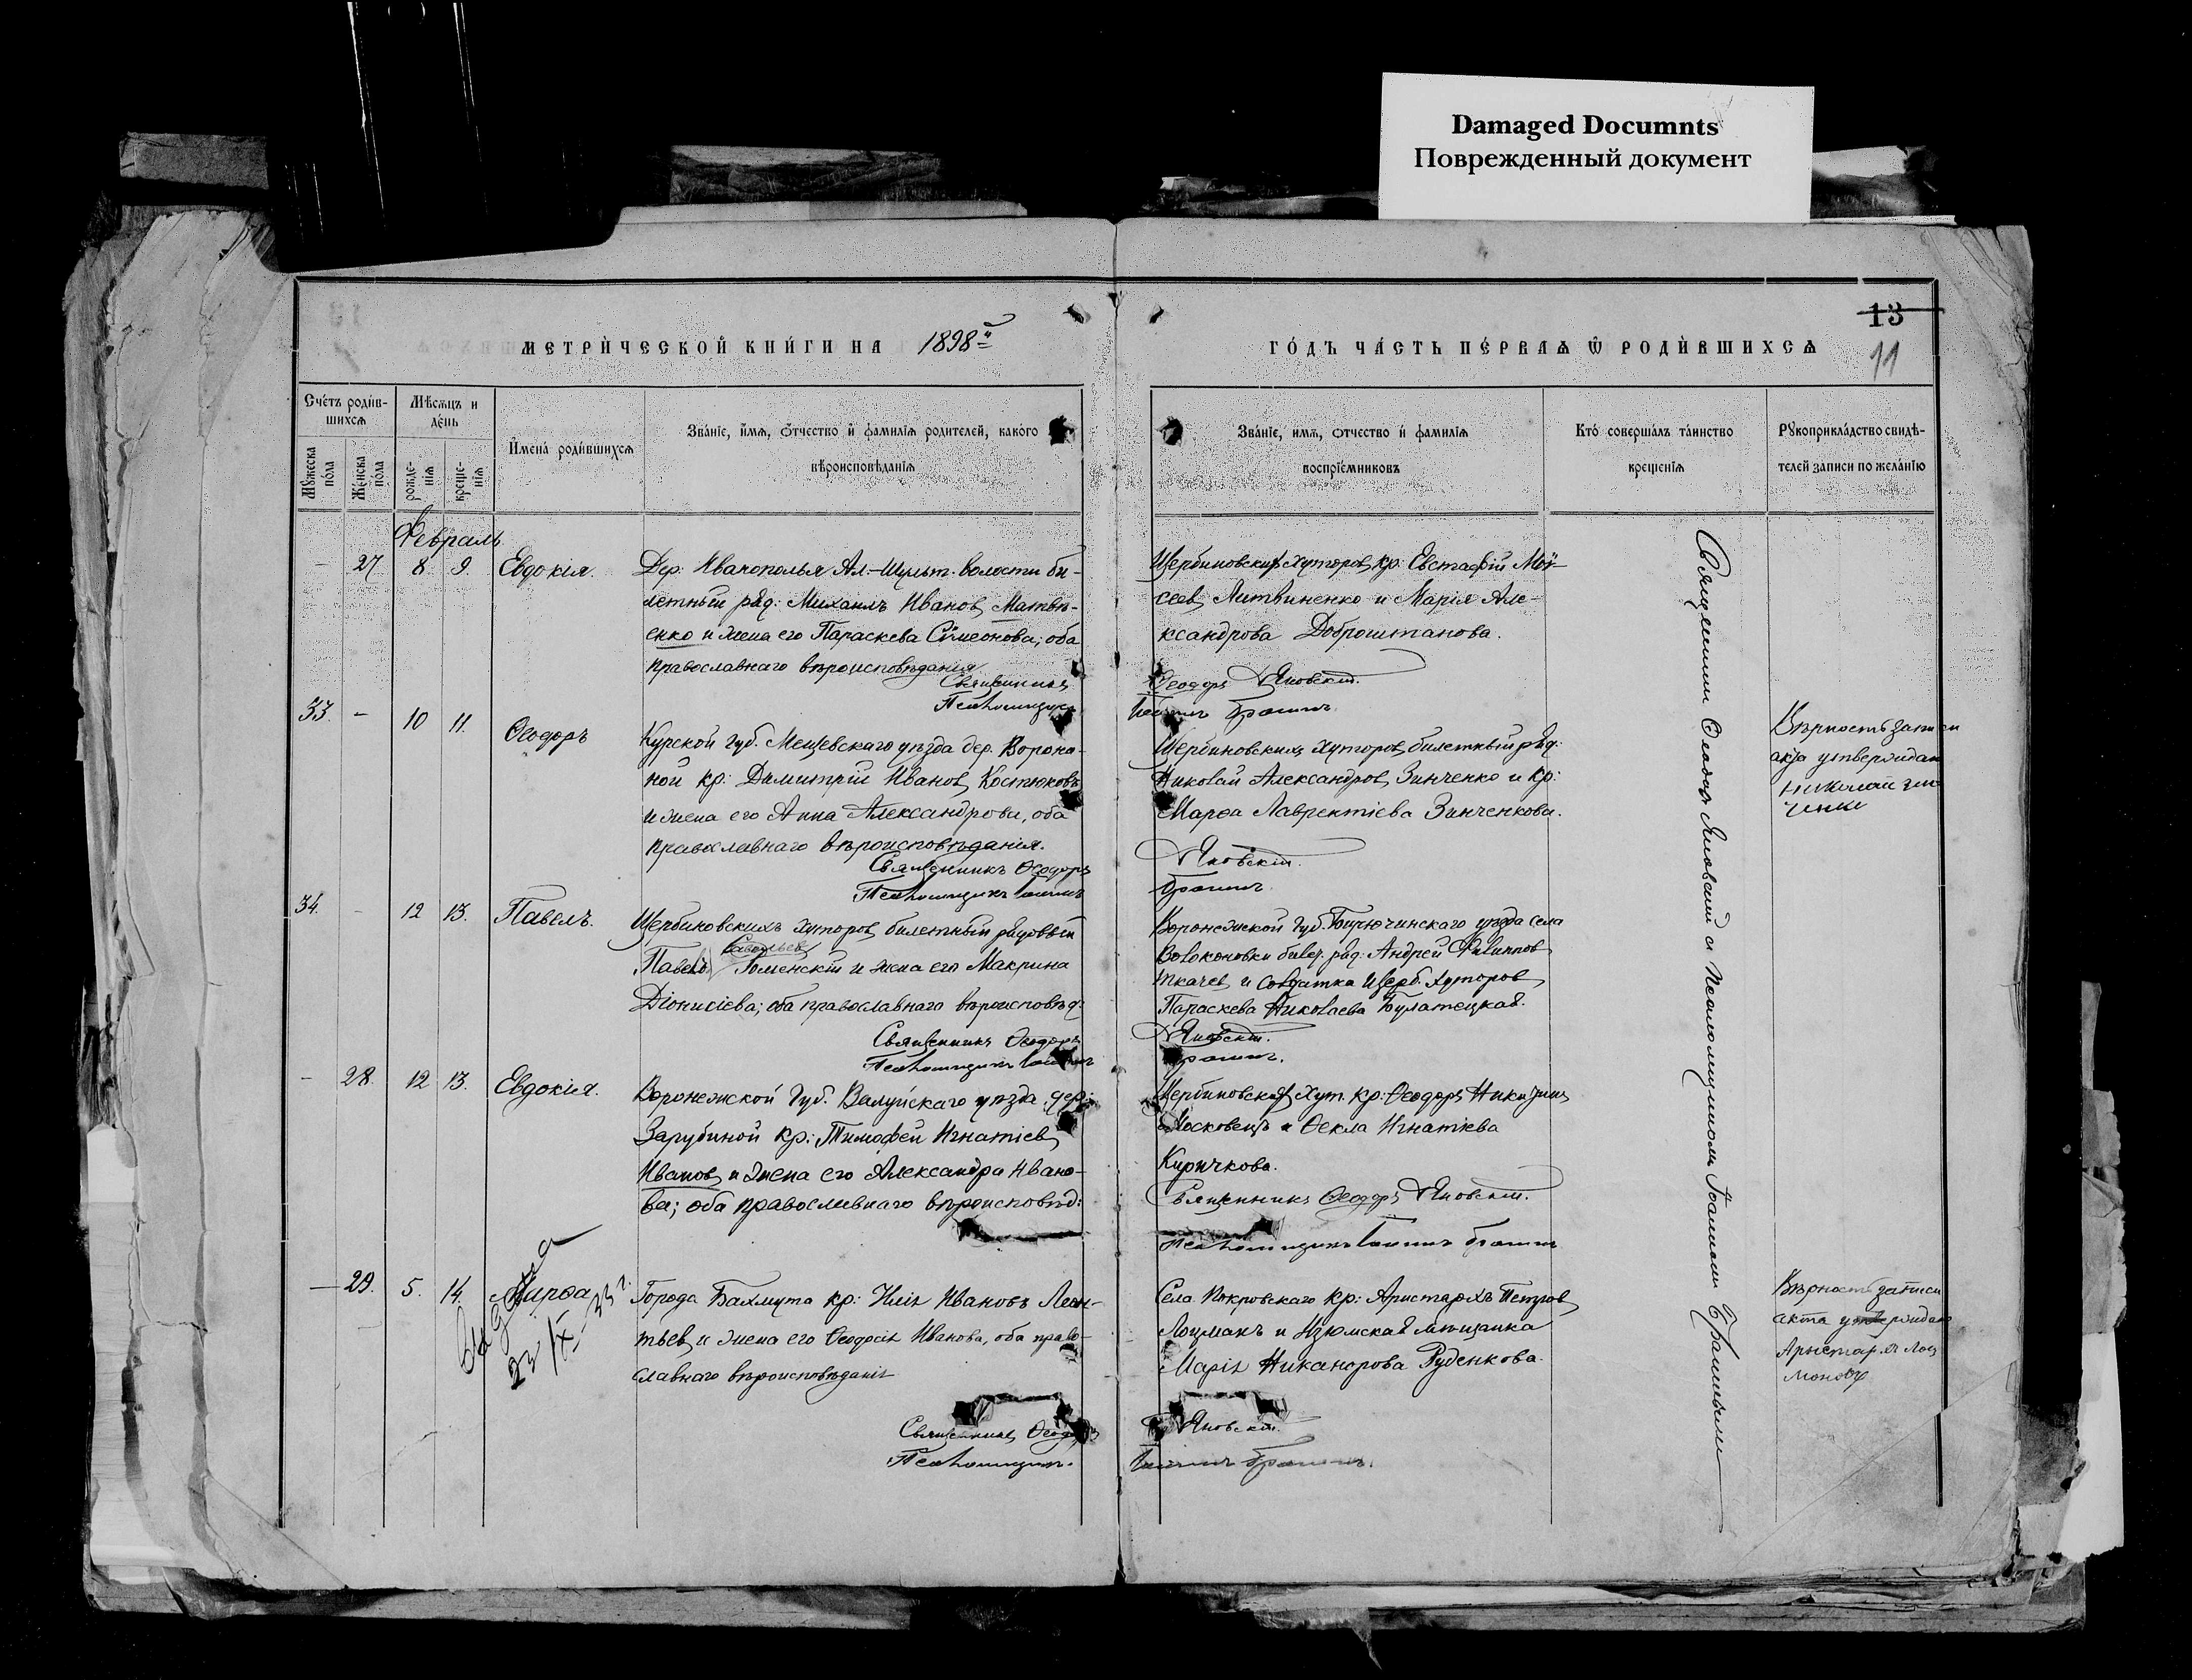 Damaged Documnts
Поврежденный документ
13
11
МЕТРИ́ЧЕСКОЙ КНИ́ГИ НА 1898й
ГО́ДЪ ЧА́СТЬ ПЕ́РВАѦ Ѿ РОДИ́ВШИХСѦ
Сче́тъ роди́в-
шихсѧ
Мѣ́сѧцъ и
де́нь
Мꙋ́жеска
по́ла
Же́нска
по́ла
рожде-
нїѧ
креще-
нїѧ
И҆мена̀ роди́вшихсѧ
Зва́нїе, и҆́мѧ, ѻ҆́тчество и҆ фамилїѧ родителей, како́го
вѣроисповѣ́данїѧ
Зва́нїе, имѧ, ѻтчество и҆ фамилїѧ
воспрїе́мниковъ
Кто̀ соверша́лъ та́инство
креще́нїѧ
Рꙋкоприкла́дство свидѣ́-
телей записи по жела́нїю
Февраль
- 27 8 9. Евдокія.
Дер. Иванополья Ал.-Шульт. волости би-
летный ряд: Михаилъ Ивановъ Матвѣ-
енко и жена его Параскева Сѵмеонова; оба
православнаго вѣроисповѣданія
Священникъ
Псаломщикъ
Щербиновскихъ Хуторовъ кр: Евстафій Мой-
сеевъ Литвиненко и Марія Але-
ксандрова Доброштанова.
Ѳеодоръ Яновскій.
33. - 10 11. Ѳеодоръ
Курской губ. уѣзда дер. Ворона-
ной кр: Димитрій Ивановъ Костюковъ
и жена его Анна Александрова, оба
православнаго вѣроисповѣданія.
Священникъ Ѳеодоръ
Псаломщикъ Іоаннъ
Щербиновскихъ Хуторовъ билетный ряд:
Николай Александровъ Зинченко и кр:
Марѳа Лаврентіева Зинченкова.
Яновскій.
Вѣрность записи
акта утверждаю
Николай Зин
ченко
34. - 12 13. Павелъ.
Щербиновскихъ Хуторовъ билетный рядовый
Савельевъ
Павелъ Роменскій и жена его Макрина
Діонисіева; оба православнаго вѣроисповѣд:
Священникъ Ѳеодоръ
Псаломщикъ Іоаннъ
Воронежской губ. Бирючинского уѣзда села
Волоконовки билет. ряд: Андрей Филипповъ
Ткачевъ и солдатка Щерб. Хуторовъ
Параскева Николаева Булатецкая.
Яновскій.
- 28. 12 13. Евдокія.
Воронежской губ. Валуйскаго уѣзда, дер:
Зарубиной кр: Тимофей Игнатіевъ
Ивановъ и жена его Александра Ивано-
ва; оба православнаго вѣроисповѣд:
Щербиновскихъ Хут. кр: Ѳеодоръ Никитинъ
Московецъ и Ѳекла Игнатіева
Киричкова.
Священникъ Ѳеодоръ Яновскій.
Псаломщикъ Іоаннъ
- 29. 5. 14. Марѳа
Города Бахмута кр: Илія Ивановъ Леон-
тьевъ и жена его Ѳеодосія Иванова, оба право-
славнаго вѣроисповѣданія
Священникъ Ѳеодоръ
Псаломщикъ
Села Покровскаго кр: Аристархъ Петровъ
Лоцманъ и Изюмская мѣщанка
Марія Никанорова Руденкова.
Яновскій.
Іоаннъ
Вѣрность записи
акта утверждаю
Аристархъ Лоц
Священникъ Ѳеодоръ Яновскій съ Псаломщикомъ Іоанномъ